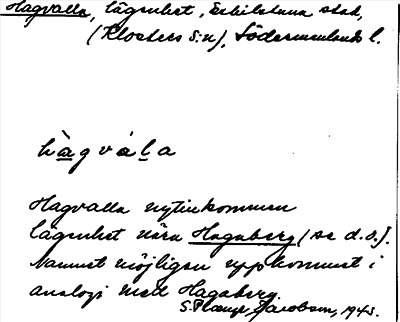 Hagvalla, lägenhet, Eskilstuna stad,
(Klosters s:n), Södermanlands l.
hàgvála
Hagvalla nytillkommen
lägenhet nära Hagaberg (se d.o.).
Namnet möjligen uppkommet i
analogi med Hagaberg.
S. Jacobson, 1943.